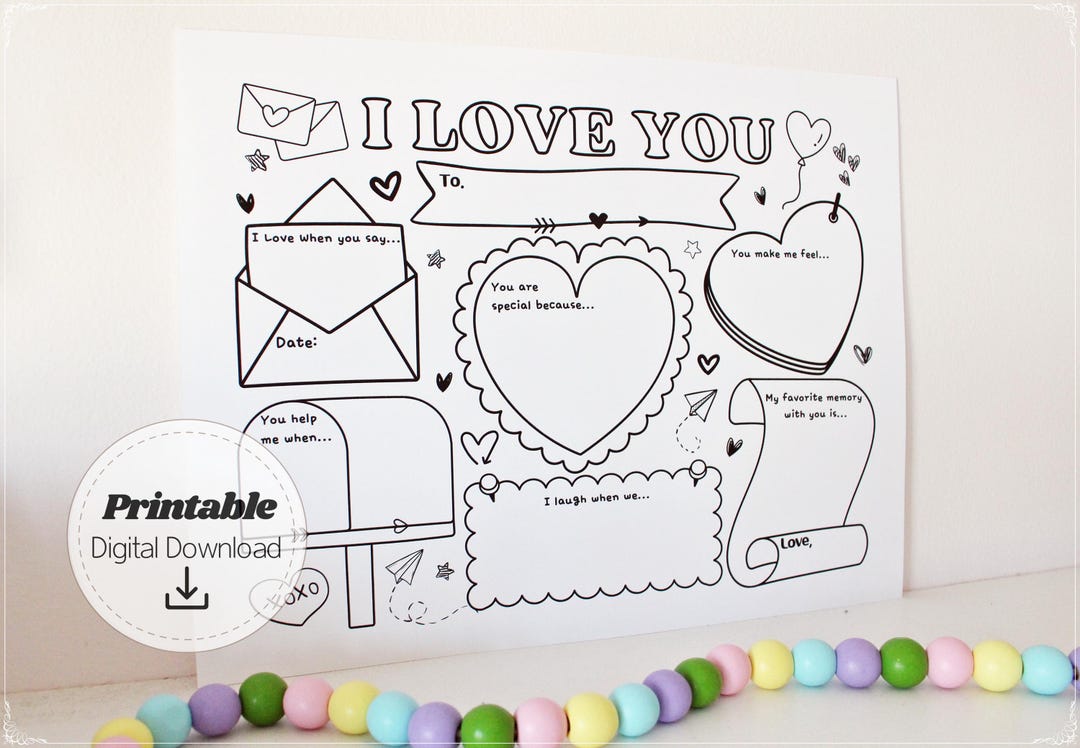 I LOVE YOU
To,
I Love When you say...
You make me feel...
You are
special because...
Date:
You help
me when...
My favorite memory
with you is...
I laugh when we...
Love,
XOXO
Printable
Digital Download